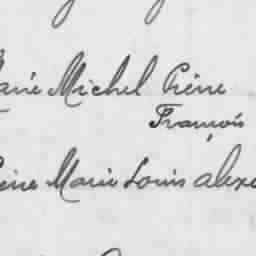 Marie Michel Pierre
François
Pierre Marie Louis Alex